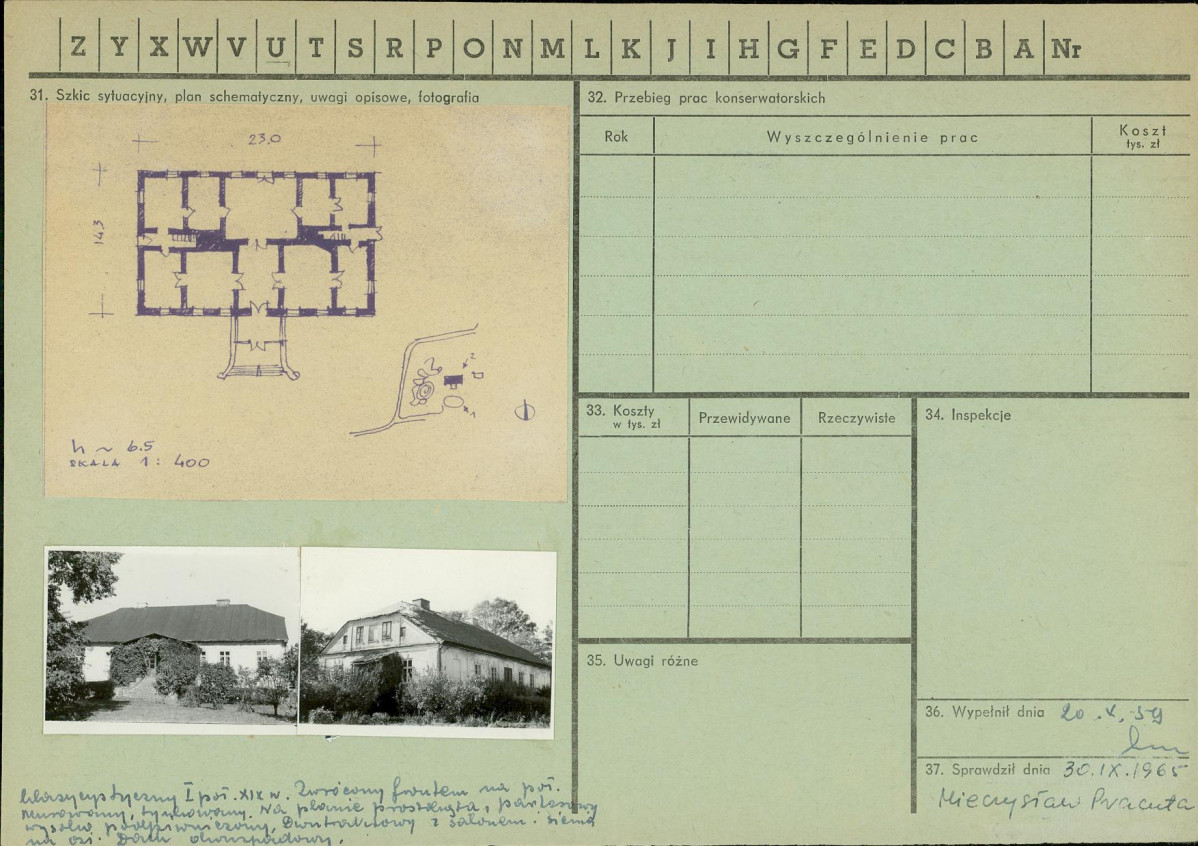 Z Y X W V U T S R P O N M L K J I H G F E D C B A Nr
31. Szkic sytuacyjny, plan schematyczny, uwagi opisowe, fotografia
23,0
14,3
2
1
h ~ 6.5
SKALA 1 : 400
klasycystyczny I poł. XIX w. Zwrócony frontem na poł.
Murowany, tynkowany. Na planie prostokąta, parterowy
wysoko podpiwniczony, Dwutraktowy z salonem i sienią
na osi. Dach dwuspadowy.
32. Przebieg prac konserwatorskich
Rok Wyszczególnienie prac Koszt
tys. zł
33. Koszty
w tys. zł
Przewidywane
Rzeczywiste
34. Inspekcje
35. Uwagi różne
36. Wypełnił dnia 20.X.59
37. Sprawdził dnia 30.IX.1965
Mieczysław